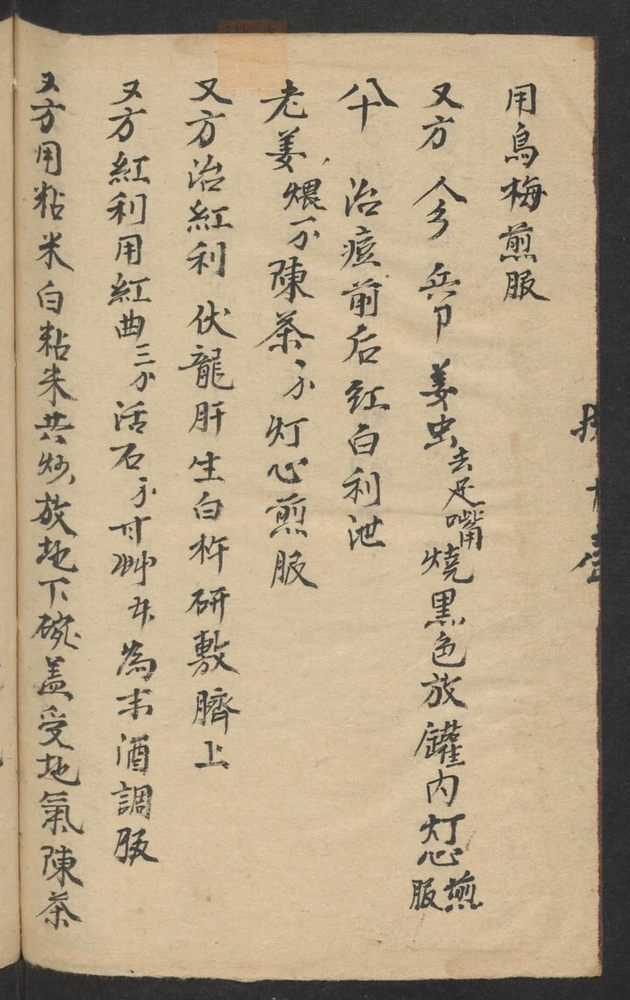 用烏梅煎服
又方 人今 兵卩 姜虫去足嘴燒黑色放罐内灯心煎服
八十 治痘前后紅白利泄
老姜煨 陳茶 灯心煎服
又方治紅利 伏龍肝生白杵研敷臍上
又方紅利用紅曲三分活石 甘艸 為末酒調服
又方用粘米白粘米共炒放地下碗盖受地氣陳茶